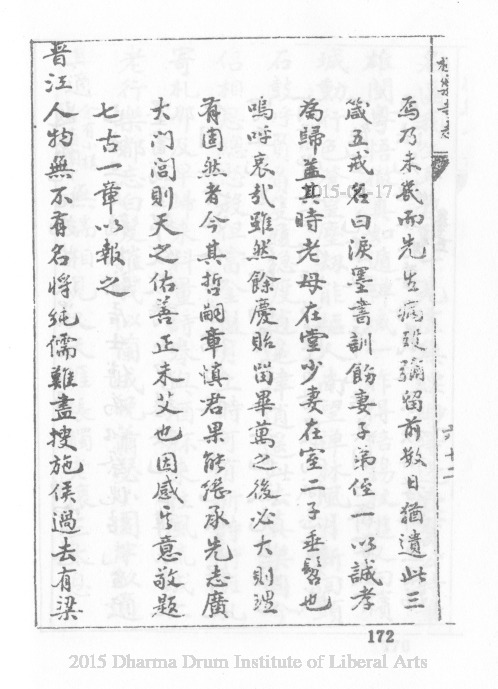 焉乃未幾而先生病革彌留前数日猶遺此三
箴五戒名曰淚墨書訓飭妻子弟侄一以誠孝
為歸蓋其時老母在堂少妻在室二子垂髫也
嗚呼哀哉雖然餘慶貽留畢萬之後必大則理
有固然者今其哲嗣章慎君果能繼承先志廣
大门閭則天之佑善正未艾也因感其意敬題
七古一章以報之
晋江人物無不有名将純儒難盡搜施侯過去有梁
六十二
2015-04-17
172
2015 Dharma Drum Institute of Liberal Arts